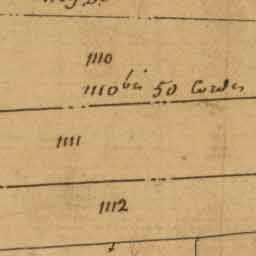 1110
1110 bis 50 Cordes
1111
1112